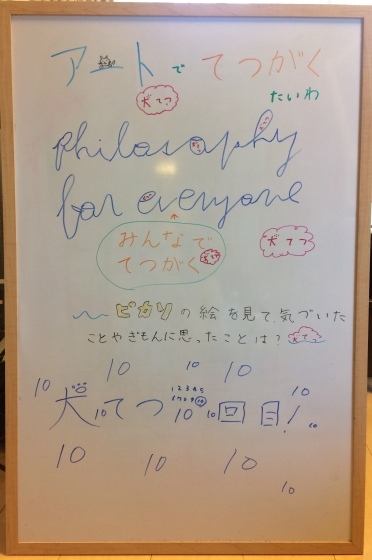 アートで てつがく
犬てつ
たいわ
philosophy
for everyone
みんなで
てつがく 犬てつ
犬てつ
ピカソの絵を見て、気づいた
ことやぎもんに思ったことは? 犬てつ
10 10 10
10 10
1 2 3 4 5
6 7 8 9 10
犬 10 てつ 10 10 回目! 10
10 10 10
10